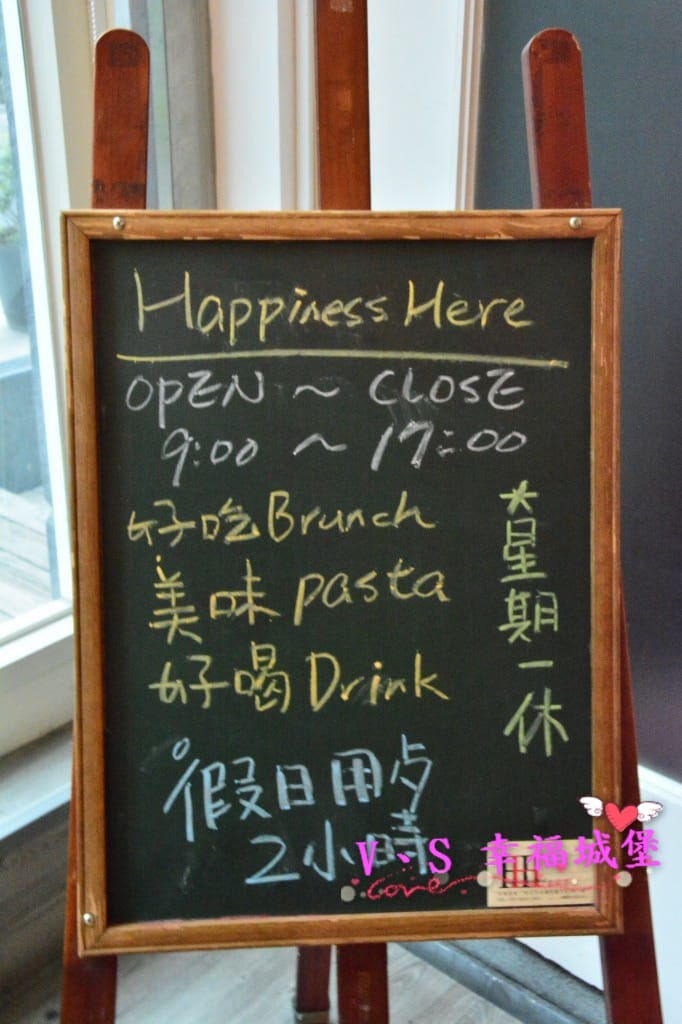 Happiness Here
OPEN ~ CLOSE
9:00 ~ 17:00
好吃 Brunch
美味 pasta
好喝 Drink
★星期一休
。假日用歺
2小時
V、S 幸福城堡
Love